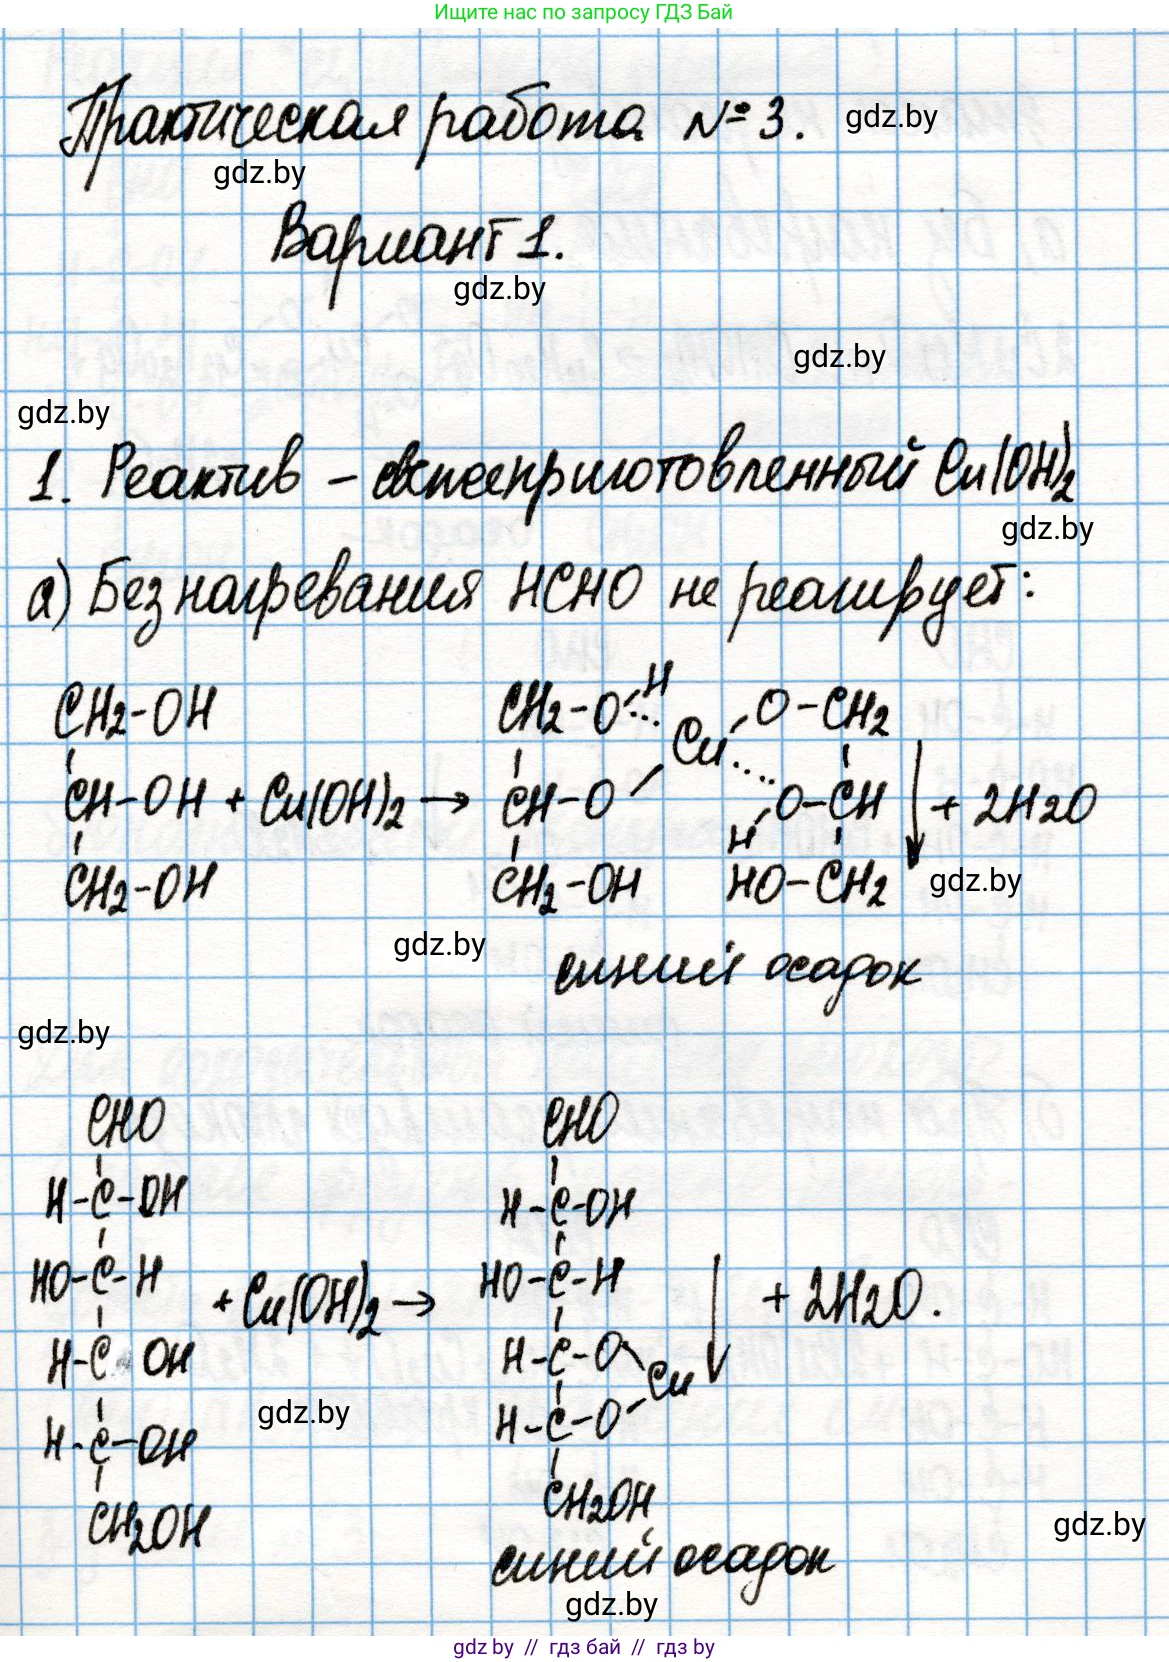 Ищите нас по запросу ГДЗ Бай
Практическая работа №3.
gdz.by
gdz.by
Вариант 1.
gdz.by
gdz.by
gdz.by
1. Реактив – свежеприготовленный Cu(OH)2
gdz.by
а) Без нагревания HCHO не реагирует:
CH2-OH CH2-O H O-CH2
Cu
CH-OH + Cu(OH)2 → CH-O O-CH ↓ + 2H2O
H
CH2-OH CH2-OH HO-CH2
gdz.by
gdz.by
синий осадок
gdz.by
CHO CHO
H-C-OH H-C-OH
HO-C-H HO-C-H
+ Cu(OH)2 → ↓ + 2H2O.
H-C OH H-C-O
Cu
gdz.by
H-C-OH H-C-O
CH2OH CH2OH
gdz.by
синий осадок
gdz.by
gdz.by // гдз бай // gdz by